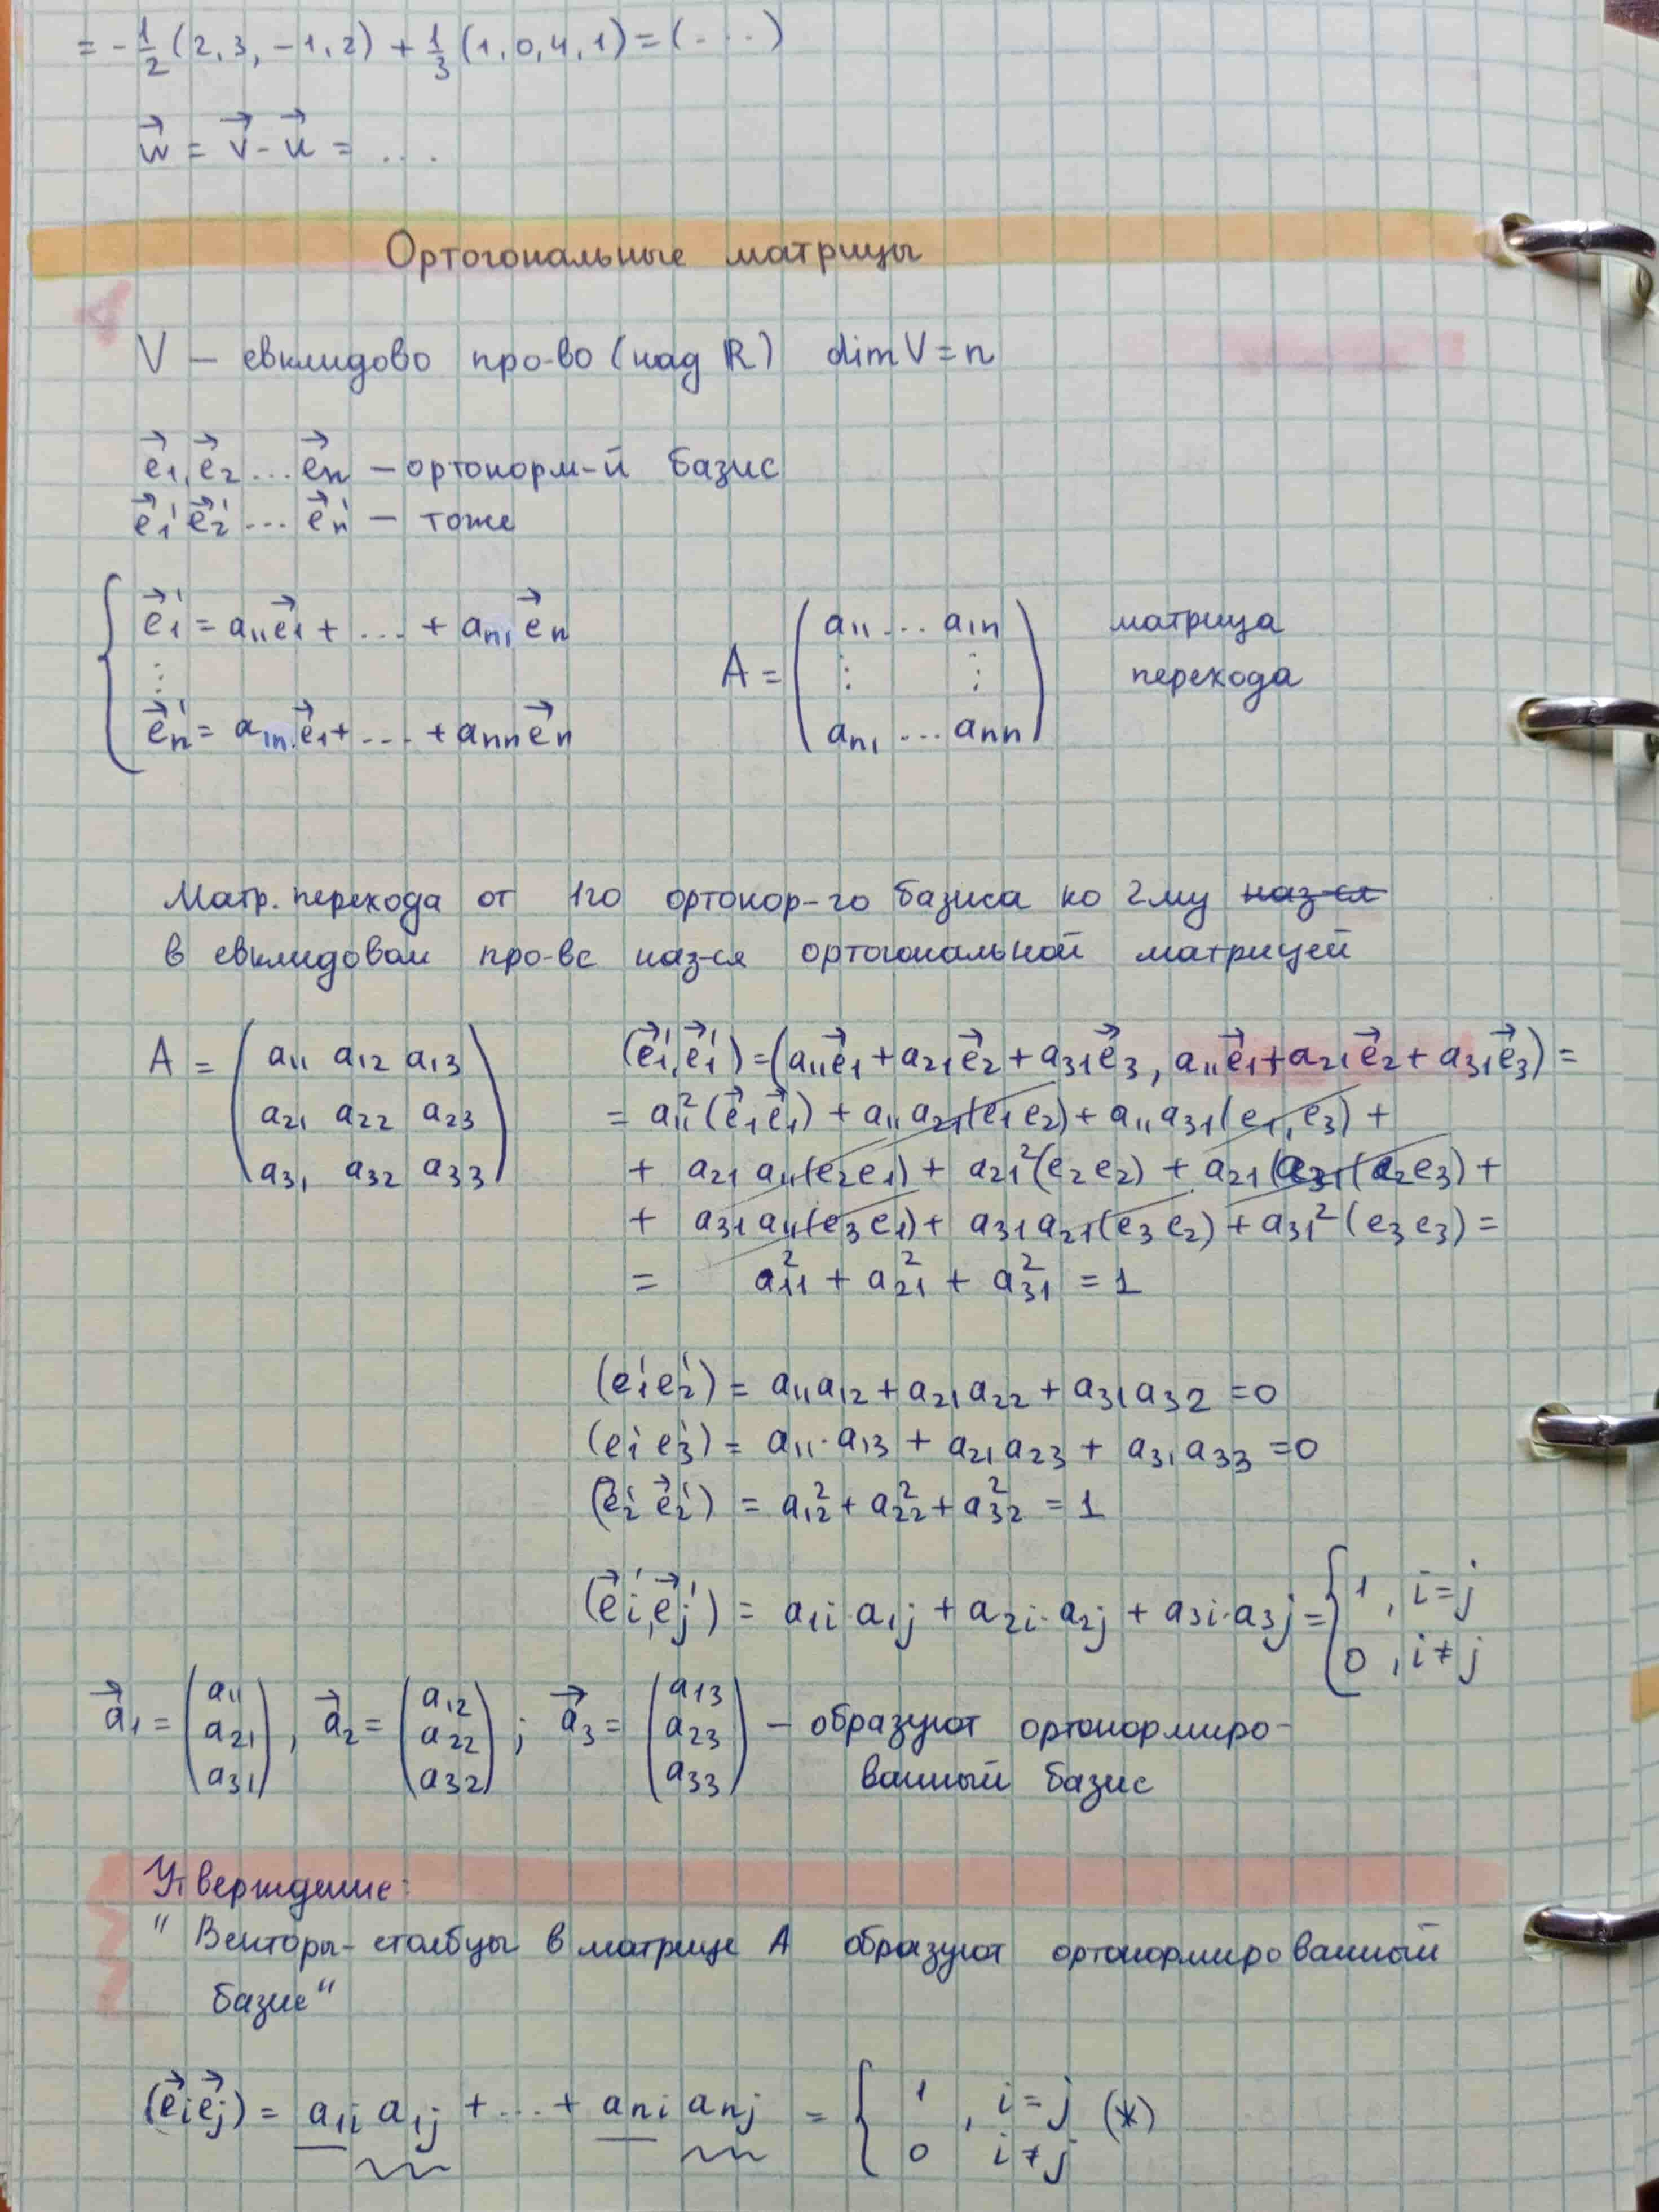 = -1/2 (2, 3, -1, 2) + 1/3 (1, 0, 4, 1) = (...)
w⃗ = v⃗ - u⃗ = ...
Ортогональные матрицы
V — евклидово про-во (над ℝ) dim V = n
e⃗₁, e⃗₂ ... e⃗ₙ — ортонорм-й базис
e⃗₁' e⃗₂' ... e⃗ₙ' — тоже
{ e⃗₁' = a₁₁e⃗₁ + ... + aₙ₁e⃗ₙ
⋮
e⃗ₙ' = a₁ₙe⃗₁ + ... + aₙₙe⃗ₙ
A = ( a₁₁ ... a₁ₙ
⋮ ⋮
aₙ₁ ... aₙₙ )
матрица
перехода
Матр. перехода от 1го ортонор-го базиса ко 2му ~~наз-ся~~
в евклидовом про-ве наз-ся ортогональной матрицей
A = ( a₁₁ a₁₂ a₁₃
a₂₁ a₂₂ a₂₃
a₃₁ a₃₂ a₃₃ )
(e⃗₁', e⃗₁') = (a₁₁e⃗₁ + a₂₁e⃗₂ + a₃₁e⃗₃, a₁₁e⃗₁ + a₂₁e⃗₂ + a₃₁e⃗₃) =
= a₁₁²(e⃗₁e⃗₁) + a₁₁a₂₁(e₁e₂) + a₁₁a₃₁(e₁, e₃) +
+ a₂₁a₁₁(e₂e₁) + a₂₁²(e₂e₂) + a₂₁a₃₁(e₂e₃) +
+ a₃₁a₁₁(e₃e₁) + a₃₁a₂₁(e₃e₂) + a₃₁²(e₃e₃) =
= a₁₁² + a₂₁² + a₃₁² = 1
(e₁'e₂') = a₁₁a₁₂ + a₂₁a₂₂ + a₃₁a₃₂ = 0
(e₁'e₃') = a₁₁·a₁₃ + a₂₁a₂₃ + a₃₁a₃₃ = 0
(e⃗₂'e⃗₂') = a₁₂² + a₂₂² + a₃₂² = 1
(e⃗i', e⃗j') = a₁i·a₁j + a₂i·a₂j + a₃i·a₃j = { 1, i = j
0, i ≠ j
a⃗₁ = (a₁₁ a₂₁ a₃₁), a⃗₂ = (a₁₂ a₂₂ a₃₂); a⃗₃ = (a₁₃ a₂₃ a₃₃) — образуют ортонормиро-
ванный базис
Утверждение:
" Векторы-столбцы в матрице A образуют ортонормированный
базис"
(e⃗i e⃗j) = a₁i a₁j + ... + aₙi aₙj = { 1, i = j (*)
0 i ≠ j